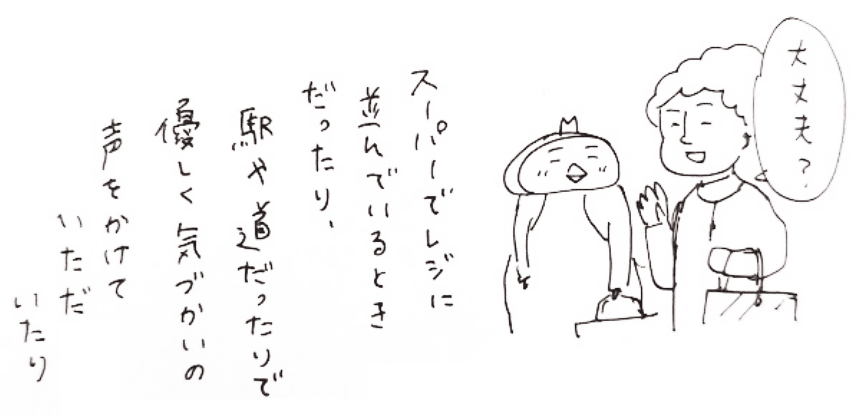 大丈夫?
スーパーでレジに
並んでいるとき
だったり、
駅や道だったりで
優しく気づかいの
声をかけて
いただ
いたり